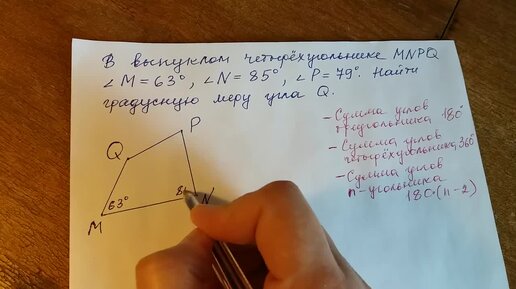 В выпуклом четырёхугольнике MNPQ
∠M=63°, ∠N=85°, ∠P=79°. Найти
градусную меру угла Q.
- Сумма углов
треугольника 180°
- Сумма углов
четырёхугольника 360°
- Сумма углов
n-угольника
180·(n-2)
P
Q
63°
8
N
M